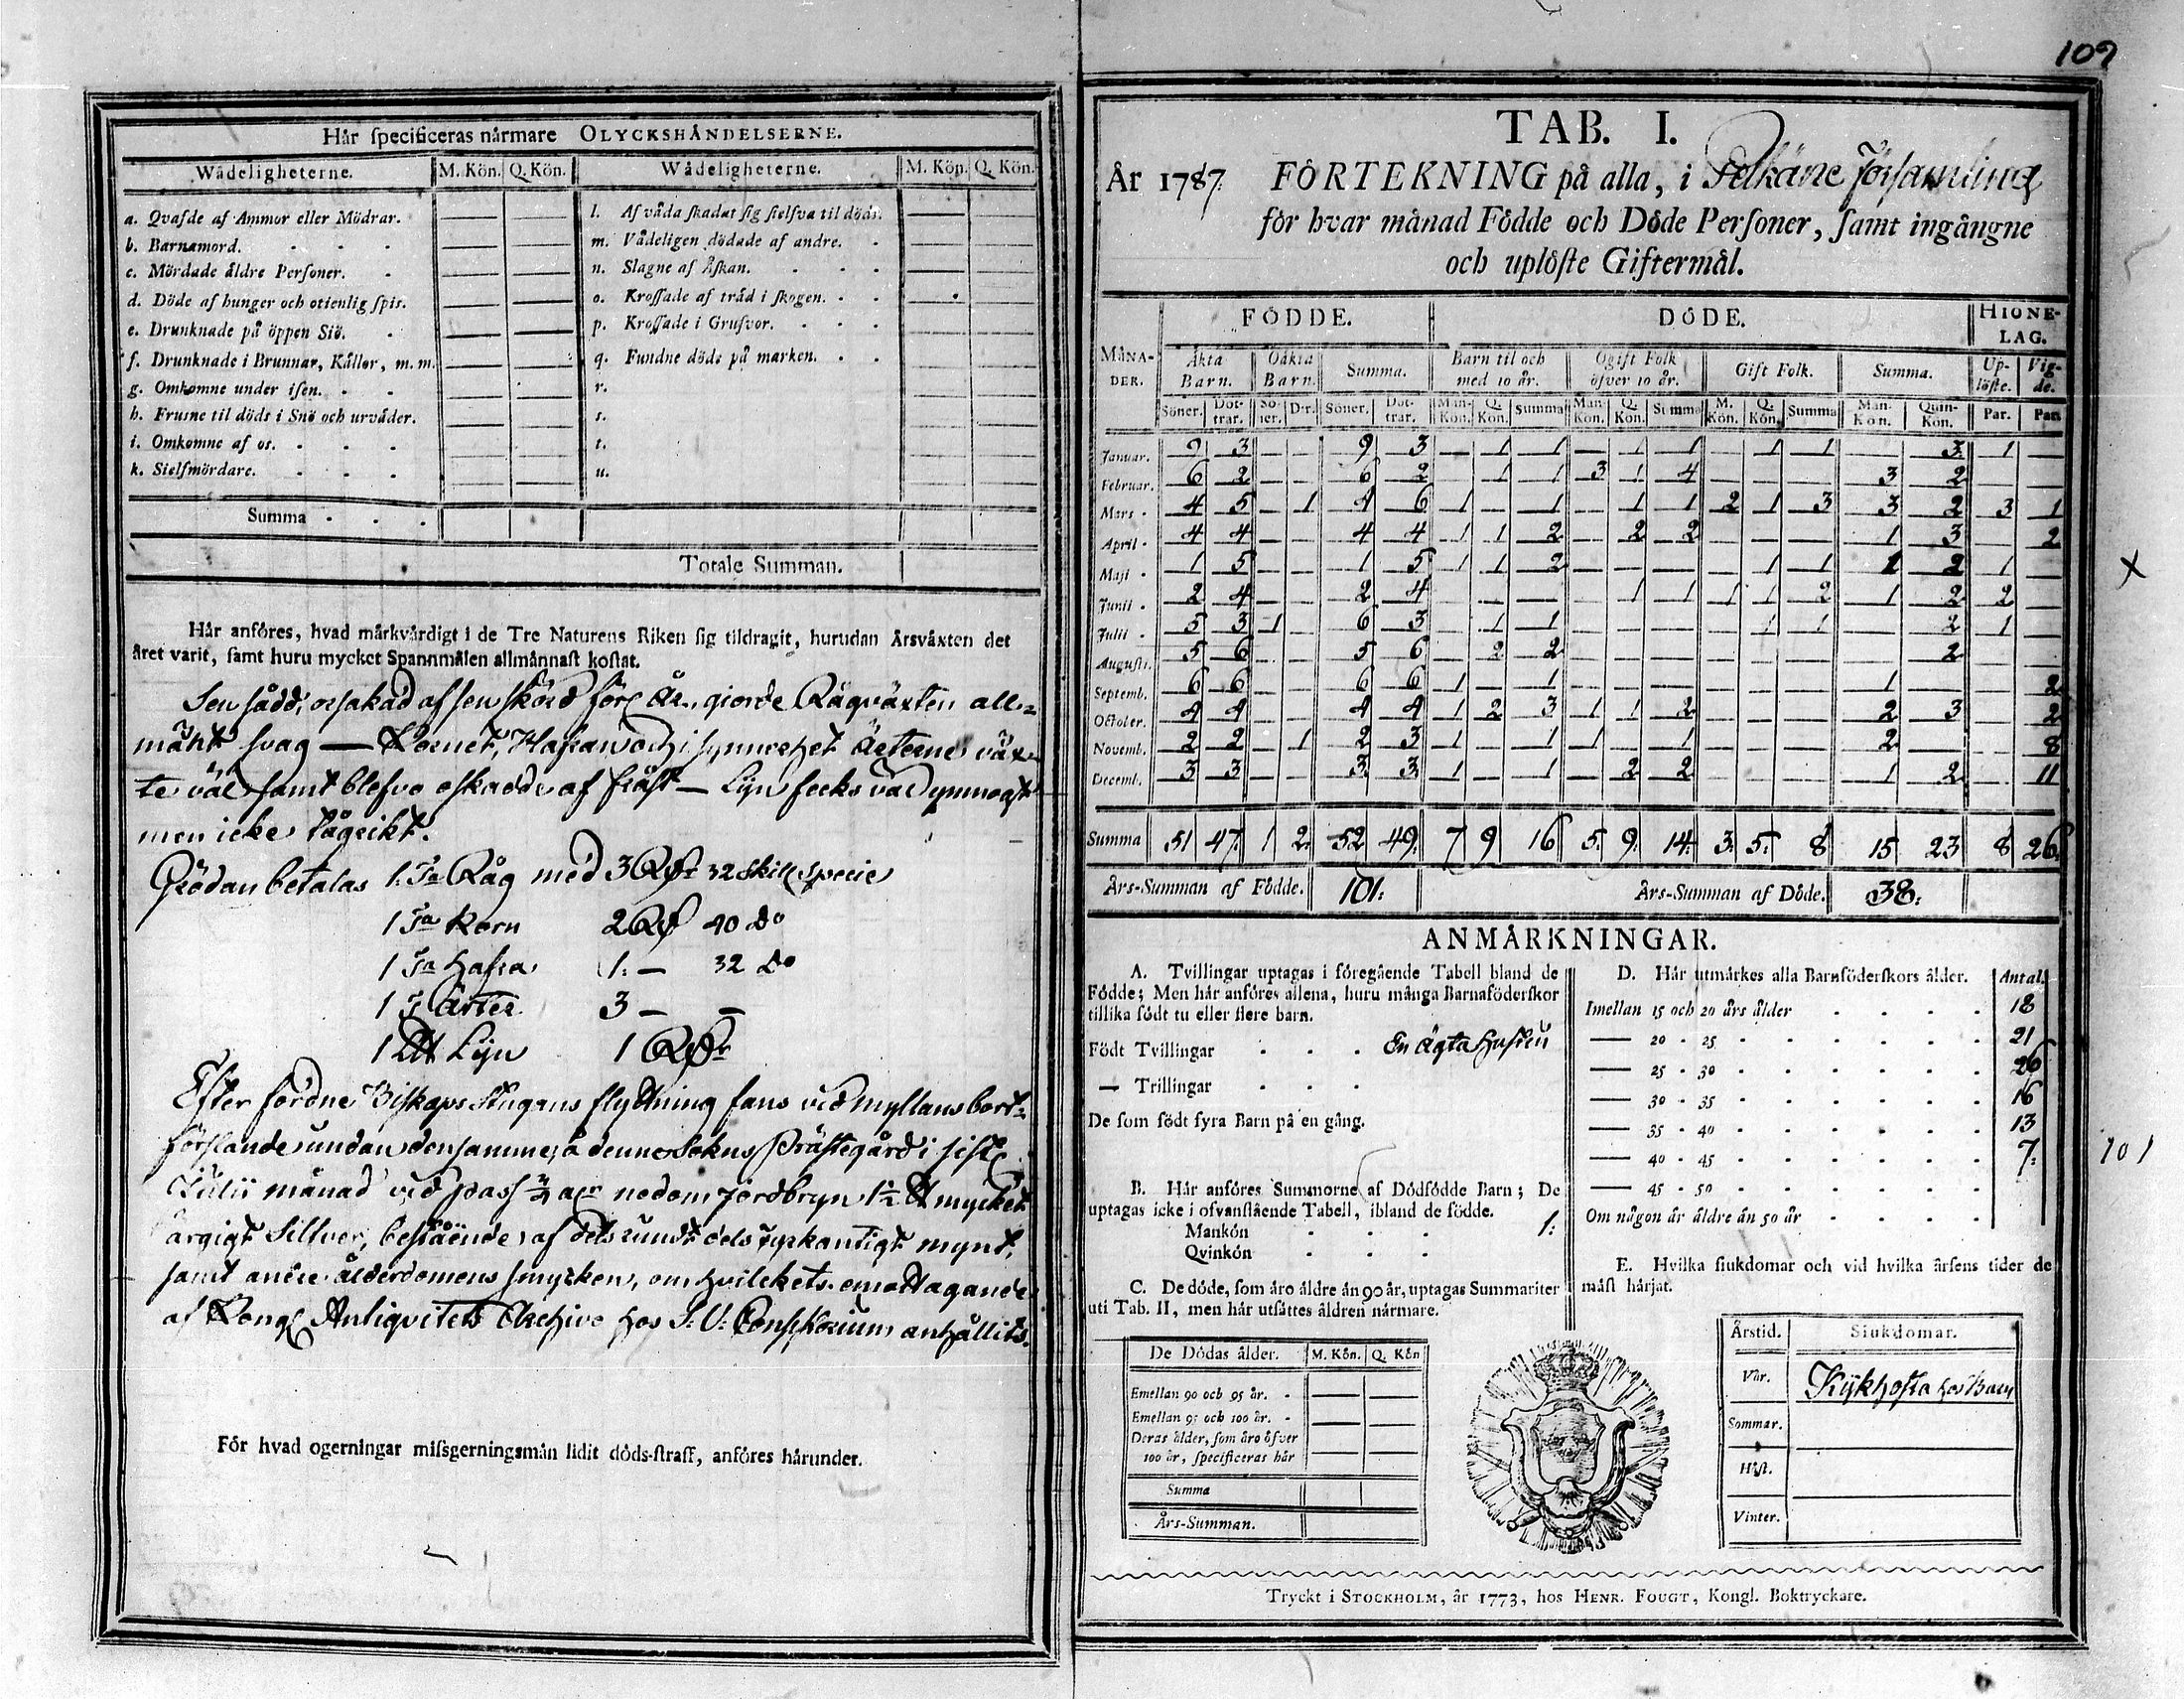 Hår ſpecificeras nårmare OLYCKSHÅNDELSERNE.
Wådeligheterne. M. Kön. Q. Kön. Wådeligheterne. M. Kön. Q. Kön.
a. Qvafde af Ammor eller Mödrar. — — l. Af våda ſkadat ſig ſielfva til döds. — —
b. Barnamord. — — m. Vådeligen dödade af andre. — —
c. Mördade åldre Perſoner. — — n. Slagne af Åſkan. — —
d. Döde af hunger och otienlig ſpis. — — o. Kroſſade af tråd i ſkogen. — —
e. Drunknade på öppen Siö. — — p. Kroſſade i Grufvor. — —
f. Drunknade i Brunnar, Kållor, m. m. — — q. Fundne döde på marken. — —
g. Omkomne under iſen. — — r. — —
h. Fruſne til döds i Snö och urvåder. — — s. — —
i. Omkomne af os. — — t. — —
k. Sielfmördare. — — u. — —
Summa
Totale Summan.
Hår anföres, hvad mårkvårdigt i de Tre Naturens Riken ſig tildragit, hurudan Årsvåxten det
året varit, ſamt huru mycket Spannmålen allmånnaſt koſtat.
Sen sådd, orsakad af sen skörd förl. År, giorde Rågväxten all-
mänt svag — Kornet, Hafran och i synnerhet Ärterne väx-
te väl samt blefvo oskadde af fråst — Lijn feck väl ymnogt
men icke tågrikt.
Grödan betalas 1. Ta Råg med 3 Rdr 32 skill specie
1 Ta Korn 2 Rdr 40 Do
1 Ta Hafra 1. — 32 Do
1 T Ärter 3 — —
1 Lijn 1 Rdr
Efter fordne Biskops Stugans flyttning fans vid myllans bort-
förslande undan densamme, å denne Sokns Prästegård i sistl.
Julii månad vid pass alr nedom jordbryn 1½ mycket
ärgigt Sillver, bestående af dels rundt dels fyrkantigt mynt,
samt andre ålderdomens smycken, om hvilckets emottagande
af Kongl. Antiqvitets Archivo hos S. V. Consistorium anhållits.
För hvad ogerningar miſsgerningsmån lidit döds-ſtraff, anföres hårunder.
109
TAB. I.
År 1787. FÖRTEKNING på alla, i Pelkäne Församling
för hvar månad Födde och Döde Perſoner, ſamt ingångne
och uplöſte Giftermål.
FÖDDE. DÖDE. HIONE-LAG.
MÅNA-DER. Åkta Barn. Oåkta Barn. Summa. Barn til och med 10 år. Ogift Folk öfver 10 år. Gift Folk. Summa. Up-löſte. Vig-de.
Söner. Döt-trar. Sö-ner. D:r. Söner. Döt-trar. Man-Kön. Q. Kön. Summa Man. Kön. Q. Kön. Summa M. Kön. Q. Kön. Summa Man-Kön. Quin-Kön. Par. Par.
Januar. 9 3 — — 9 3 — 1 1 — 1 1 — 1 1 — 3 1 —
Februar. 6 2 — — 6 2 — 1 1 3 1 4 — — — 3 2 — —
Mars 4 5 — 1 4 6 1 — 1 — 1 1 2 1 3 3 2 3 1
April 4 4 — — 4 4 1 1 2 — 2 2 — — — 1 3 — 2
Maji 1 5 — — 1 5 1 1 2 — — — — 1 1 1 2 1 —
Junii 2 4 — — 2 4 — — — — 1 1 1 1 2 1 2 2 —
Julii 5 3 1 — 6 3 — 1 1 — — — — 1 1 — 2 1 —
Auguſti. 5 6 — — 5 6 — 2 2 — — — — — — — 2 — —
Septemb. 6 6 — — 6 6 1 — 1 — — — — — — 1 — — 2
October. 4 4 — — 4 4 1 2 3 1 1 2 — — — 2 3 — 2
Novemb. 2 2 — 1 2 3 1 — 1 1 — 1 — — — 2 — — 8
Decemb. 3 3 — — 3 3 1 — 1 — 2 2 — — — 1 2 — 11
Summa 51 47. 1 2. 52 49. 7 9 16 5. 9. 14. 3. 5. 8 15 23 8 26.
Års-Summan af Födde. 101: Års-Summan af Döde. 38:
ANMÅRKNINGAR.
A. Tvillingar uptagas i föregående Tabell bland de
Födde; Men hår anföres allena, huru många Barnaföderſkor
tillika födt tu eller flere barn.
Födt Tvillingar En ägta Hustru
— Trillingar
De ſom födt fyra Barn på en gång.
B. Hår anföres Summorne af Dödfödde Barn; De
uptagas icke i ofvanſtående Tabell, ibland de födde.
Mankön 1.
Qvinkön
C. De döde, ſom åro åldre ån 90 år, uptagas Summariter
uti Tab. II, men hår utſåttes åldren nårmare.
De Dödas ålder. M. Kön. Q. Kön
Emellan 90 och 95 år. — —
Emellan 95 och 100 år. — —
Deras ålder, ſom åro öfver
100 år, ſpecificeras hår — —
Summa
Års-Summan.
D. Hår utmårkes alla Barnföderſkors ålder. Antal.
Imellan 15 och 20 års ålder 18
— 20 - 25 21
— 25 - 30 26
— 30 - 35 16
— 35 - 40 13
— 40 - 45 7.
— 45 - 50
Om någon år åldre ån 50 år
101
E. Hvilka ſiukdomar och vid hvilka årſens tider de
måſt hårjat.
Årstid. Siukdomar.
Vår. Kijkhosta hos Barn
Sommar.
Höſt.
Vinter.
Tryckt i STOCKHOLM, år 1773, hos HENR. FOUGT, Kongl. Boktryckare.